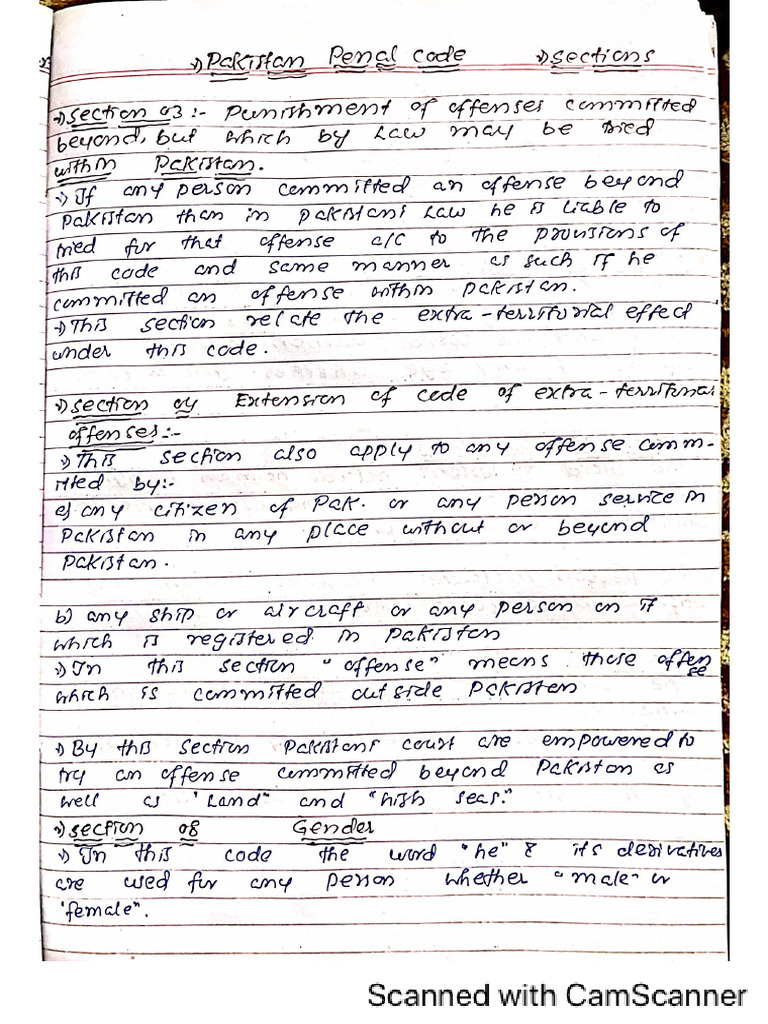 →) Pakistan Penal Code →) Sections
→) Section 03 :- Punishment of offenses committed
beyond, but which by Law may be tried
within Pakistan.
→) If any person committed an offense beyond
Pakistan than in Pakistani Law he is liable to
tried for that offense a/c to the provisions of
this code and same manner as such if he
committed an offense within Pakistan.
→) This section relate the extra-territorial effect
under this code.
→) Section 04 Extension of code of extra-territorial
offenses :-
→) This section also apply to any offense comm-
itted by:-
a) any citizen of Pak. or any person service in
Pakistan in any place without or beyond
Pakistan.
b) any ship or aircraft or any person on it
which is registered in Pakistan
→) In this section "offense" means those offense
which is committed outside Pakistan
→) By this section Pakistani court are empowered to
try an offense committed beyond Pakistan as
well as "Land" and "high seas."
→) Section 08 Gender
→) In this code the word "he" & its derivatives
are used for any person whether "male" or
"female".
Scanned with CamScanner